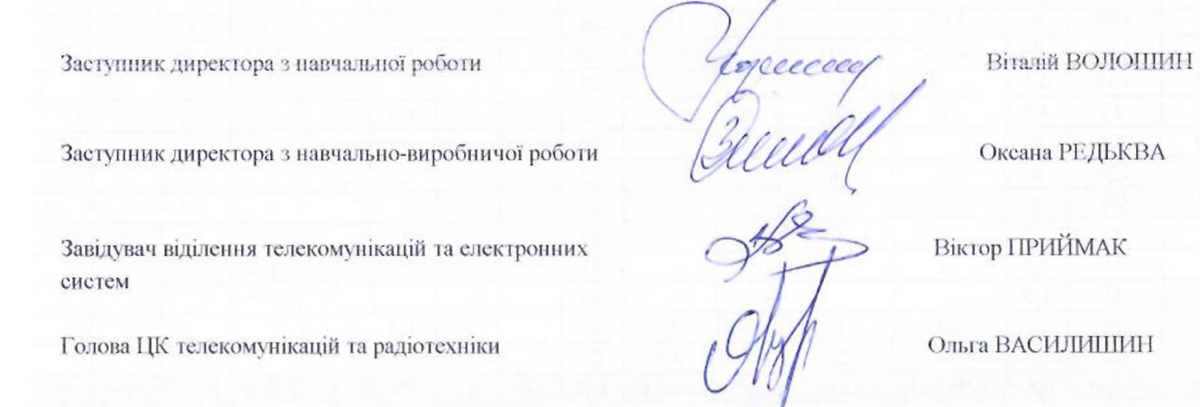 Заступник директора з навчальної роботи Віталій ВОЛОШИН
Заступник директора з навчально-виробничої роботи Оксана РЕДЬКВА
Завідувач віділення телекомунікацій та електронних Віктор ПРИЙМАК
систем
Голова ЦК телекомунікацій та радіотехніки Ольга ВАСИЛИШИН